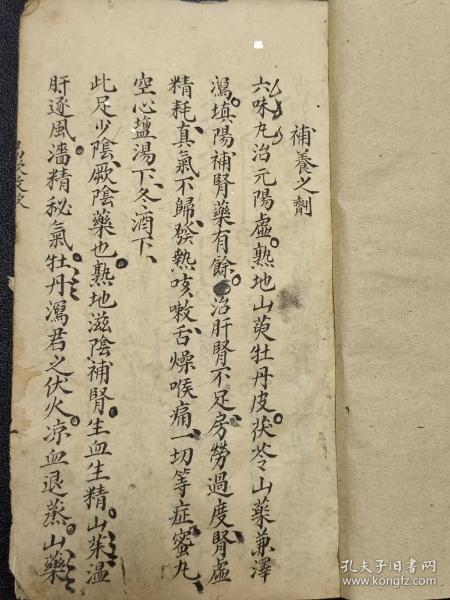 補養之劑
六味丸治元陽虛熟地山萸牡丹皮茯苓山藥兼澤
瀉填陽補腎藥有餘治肝腎不足房勞過度腎虛
精耗真氣不歸發熱咳嗽舌燥喉痛一切等症蜜丸
空心塩湯下冬酒下
此足少陰厥陰藥也熟地滋陰補腎生血生精山茱温
肝逐風濇精秘氣牡丹瀉君之伏火凉血退蒸山藥
孔夫子旧书网
www.kongfz.com